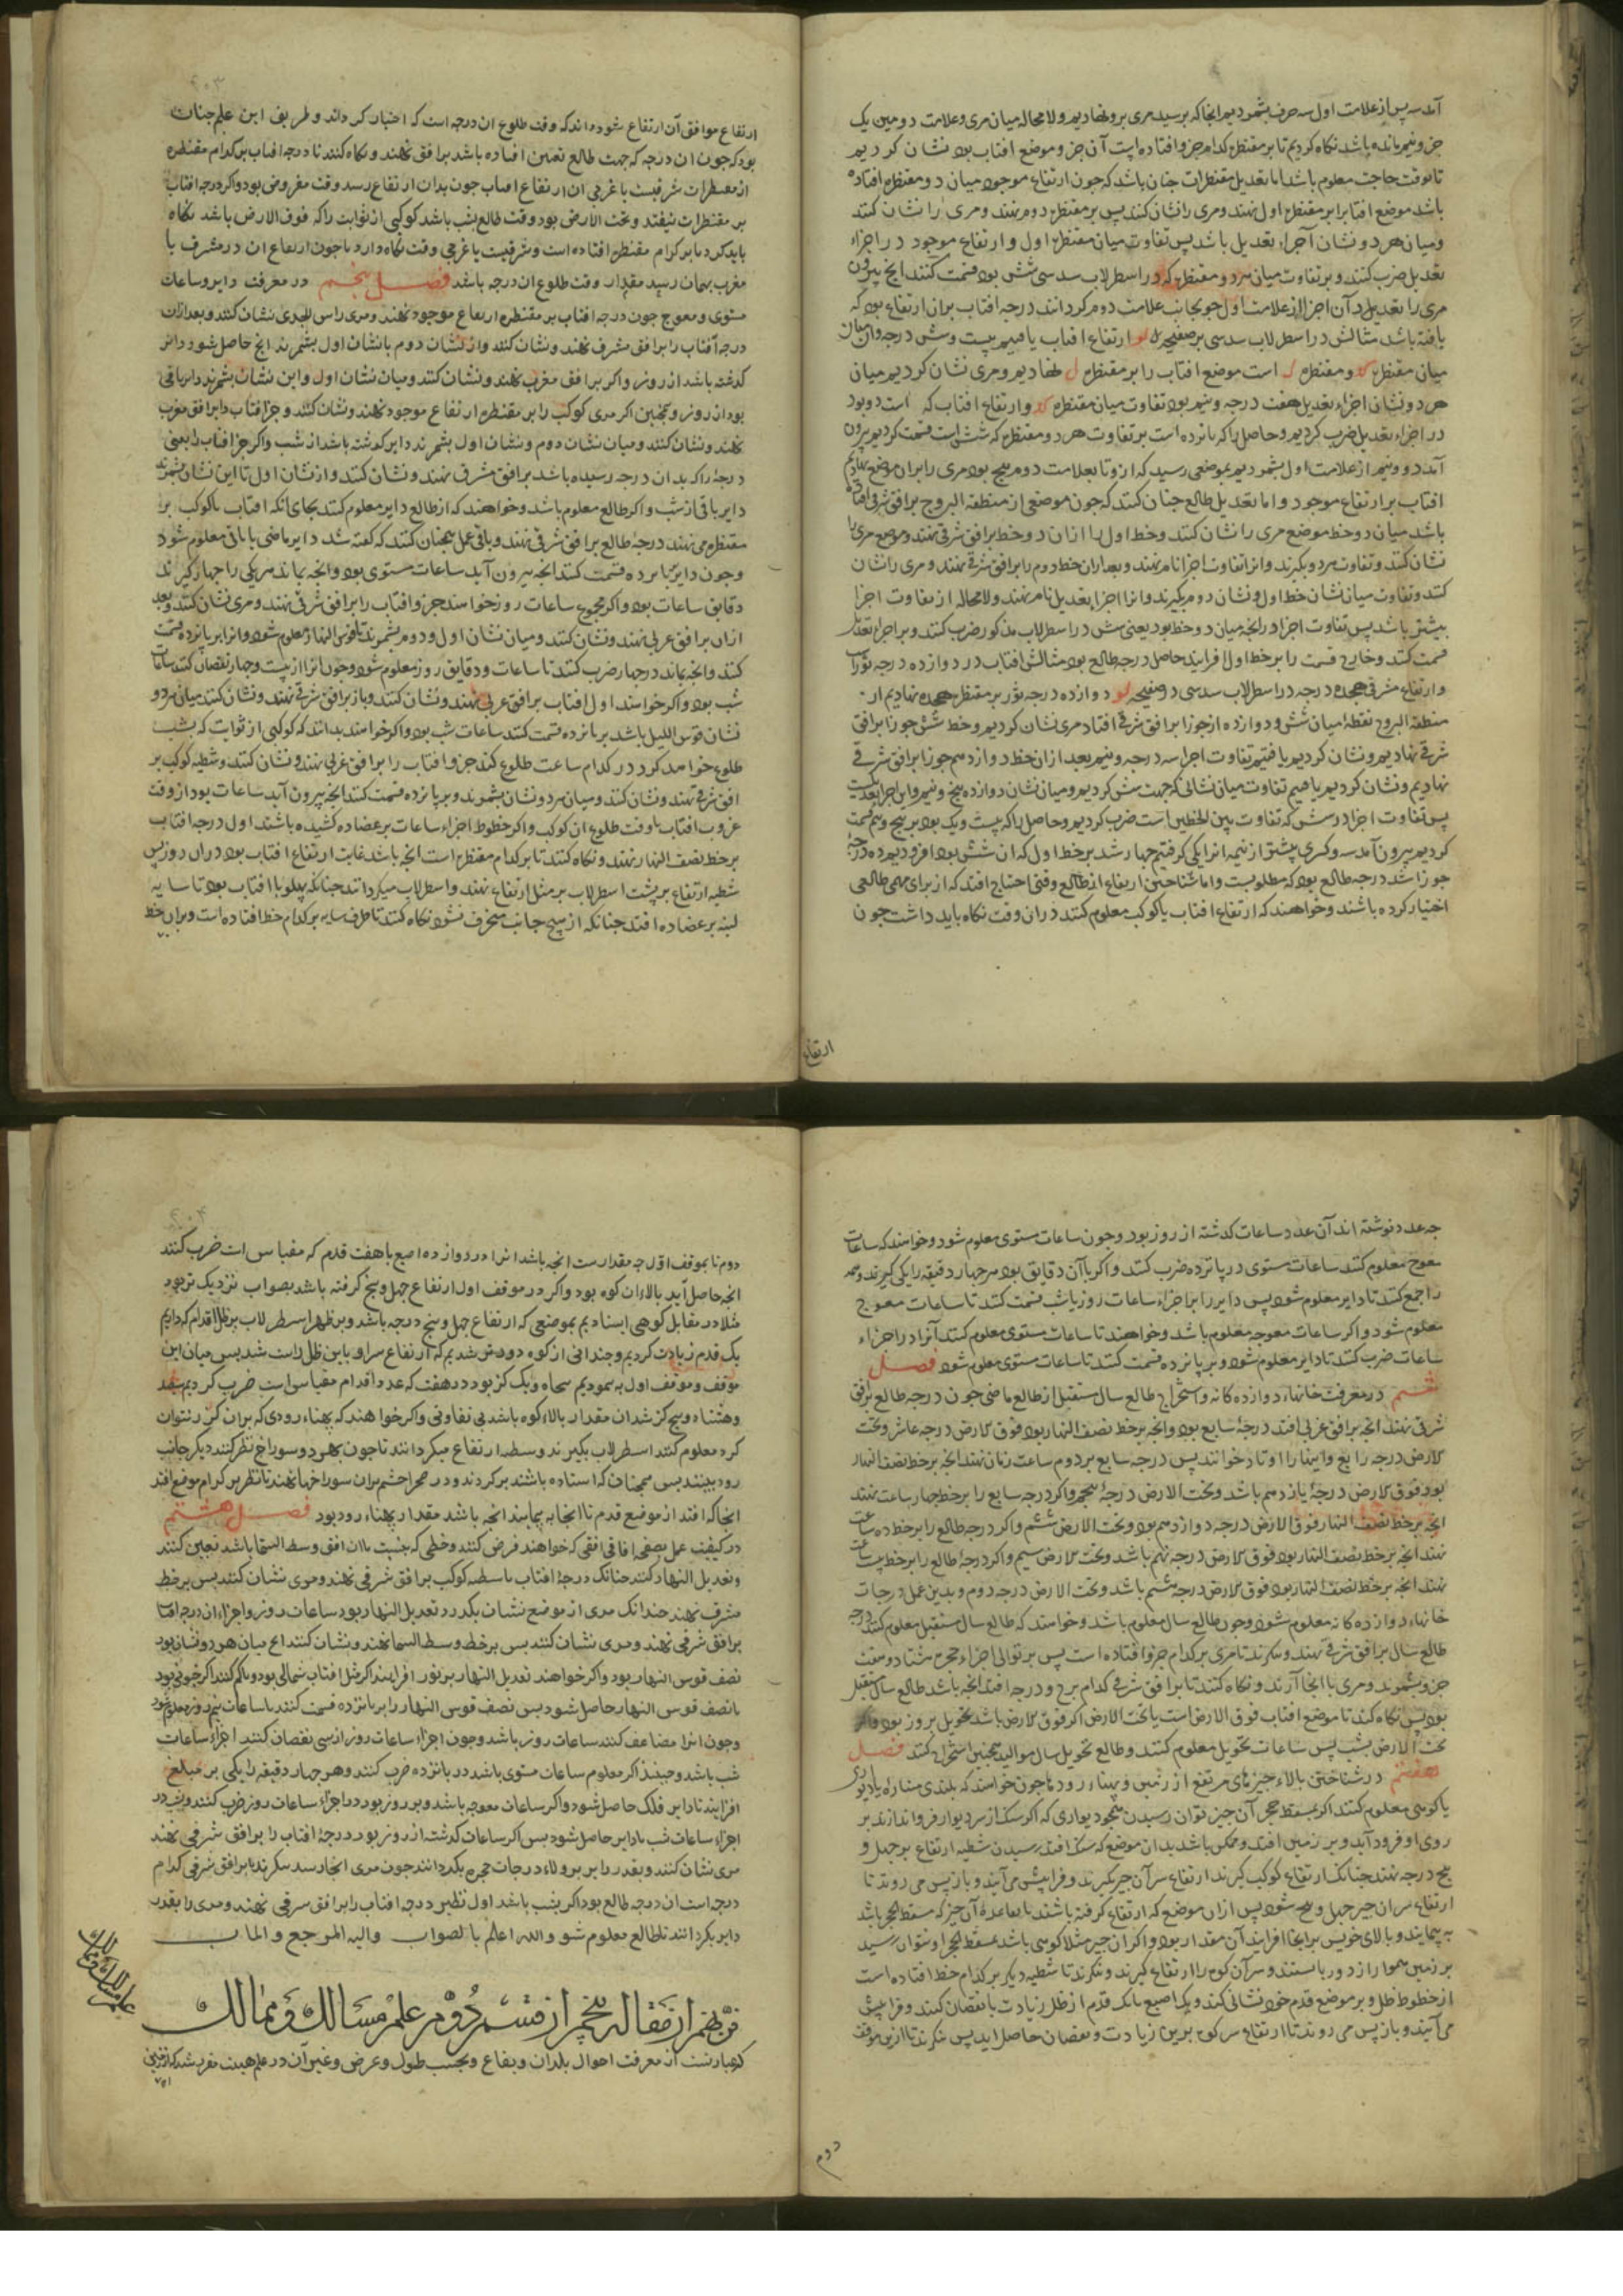 آمد سه پس از علامت اول سه حرف بشمردیم انجا که برسید مری برو نهادیم ولا محاله میان مری و علامت دومین یک
جزو نیم مانده باشد نکاه کردیم تا بر مقنطره کدام جزو افتاده است آن جزو موضع افتاب بود نشان کردیم
تا بوقت حاجت معلوم باشد اما تعدیل مقنطرات چنان باشد که چون ارتفاع موجود میان دو مقنطره افتاده
باشد موضع افتاب را بر مقنطره اول نهند و مری را نشان کنند پس بر مقنطره دوم نهند و مری را نشان کنند
و میان هر دو نشان اجزاء تعدیل باشد پس تفاوت میان مقنطره اول و ارتفاع موجود در اجزاء
تعدیل ضرب کنند و بر تفاوت میان هر دو مقنطره که در اسطرلاب سدسی شش بود قسمت کنند انچ بیرون
مری را بعدیل در آن اجزا از علامت اول بجانب علامت دوم کردانند درجه افتاب بران ارتفاع بود که
یافته باشد مثالش در اسطرلاب سدسی بر صفیحه لو ارتفاع افتاب یافتیم بیست و شش درجه و ان میان
میان مقنطره کد و مقنطره ل است موضع افتاب را بر مقنطره ل نهادیم و مری نشان کردیم میان
هر دو نشان اجزاء تعدیل هفت درجه و نیم بود تفاوت میان مقنطره کد و ارتفاع افتاب که است دو بود
در اجزاء تعدیل ضرب کردیم و حاصل را که پانزده است بر تفاوت هر دو مقنطره که شش است قسمت کردیم بیرون
آمد دو و نیم از علامت اول بشمردیم بموضعی رسید که ازو تا بعلامت دوم پنج بود مری را بران موضع نهادیم
افتاب بر ارتفاع موجود و اما تعدیل طالع چنان کنند که چون موضعی از منطقه البروج بر افق شرقی افتاده
باشد میان دو خط موضع مری را نشان کنند و خط اول را از ان دو خط بر افق شرقی نهند و موضع مری را
نشان کنند و تفاوت هر دو بکیرند و انرا تفاوت اجزا نام نهند و بعد از ان خط دوم را بر افق شرقی نهند و مری را نشان
کنند و تفاوت میان نشان خط اول و نشان دوم بکیرند و انرا اجزا تعدیل نام نهند ولا محاله از تفاوت اجزا
بیشتر باشد پس تفاوت اجزا در انچه میان دو خط بود یعنی شش در اسطرلاب مذکور ضرب کنند و بر اجزا تعدیل
قسمت کنند و خارج قسمت را بر خط اول افزایند حاصل درجه طالع بود مثالش افتاب در دوازده درجه ثور است
و ارتفاع مشرقی هجده درجه در اسطرلاب سدسی در صفیحه لو دوازده درجه ثور بر مقنطره هجده نهادیم از
منطقه البروج نقطه میان شش و دوازده از جوزا بر افق شرقی افتاد مری نشان کردیم و خط شش جوزا بر افق
شرقی نهادیم و نشان کردیم یافتیم تفاوت اجزا سه درجه و نیم بعد از ان خط دوازدهم جوزا بر افق شرقی
نهادیم و نشان کردیم یافتیم تفاوت میان نشانی که جهت شش کردیم و میان نشان دوازده پنج و نیم و این اجزا تعدیلست
پس تفاوت اجزا در شش که تفاوت بین الخطین است ضرب کردیم و حاصل را که بیست و یک بود بر پنج و نیم قسمت
کردیم بیرون آمد سه و کسری بیشتر از نیمه انرا یکی کرفتیم چهار شد بر خط اول که ان شش بود افزودیم ده درجه
جوزا شد درجه طالع بود که مطلوبست و اما شناختن ارتفاع از طالع وقتی احتیاج افتد که از برای مهمی طالعی
اختیار کرده باشند و خواهند که ارتفاع افتاب یا کوکب معلوم کنند در ان وقت نکاه باید داشت چون
ارتفاع
ارتفاع موافق آن ارتفاع شود داند که وقت طلوع ان درجه است که اختیار کرده اند و طریق این علم چنان
بود که چون ان درجه که جهت طالع تعیین افتاده باشد بر افق نهند و نکاه کنند تا درجه افتاب بر کدام مقنطره
از مقنطرات شرقیست یا غربی ان ارتفاع افتاب چون بدان ارتفاع رسد وقت مفروض بود و اکر درجه افتاب
بر مقنطرات نیفتد و تحت الارض بود وقت طالع بشب باشد کوکبی از ثوابت را که فوق الارض باشد نکاه
باید کرد تا بر کدام مقنطره افتاده است و شرقیست یا غربی وقت نکاه دارد تا چون ارتفاع ان در مشرق یا
مغرب بهمان رسد مقدار وقت طلوع ان درجه باشد فصل پنجم در معرفت دایر و ساعات
مستوی و معوج چون درجه افتاب بر مقنطره ارتفاع موجود نهند و مری راس الجدی نشان کنند و بعد از ان
درجه آفتاب را بر افق مشرق نهند و نشان کنند و از نشان دوم تا نشان اول بشمرند انچ حاصل شود دائر
کذشته باشد از روز و اکر بر افق مغرب نهند و نشان کنند و میان نشان اول و این نشان بشمرند دایر باقی
بود از روز و همچنین اکر مری کوکب را بر مقنطره ارتفاع موجود نهند و نشان کنند و جزء افتاب را بر افق مغرب
نهند و نشان کنند و میان نشان دوم و نشان اول بشمرند دایر کذشته باشد از شب و اکر جزء افتاب را یعنی
درجه را که بدان درجه رسیده باشد بر افق مشرق نهند و نشان کنند و از نشان اول تا این نشان بشمرند
دایر باقی از شب و اکر طالع معلوم باشد و خواهند که از طالع دایر معلوم کنند بجای انکه افتاب یا کوکب بر
مقنطره می نهند درجه طالع بر افق شرقی نهند و باقی عمل همچنان کنند که کفته شد دایر ماضی یا باقی معلوم شود
و چون دایر بر پانزده قسمت کنند انچه بیرون آید ساعات مستوی بود و انچه بماند هر یکی را چهار کیرند
دقایق ساعات بود و اکر مجموع ساعات روز خواهند جزو افتاب را بر افق شرقی نهند و مری نشان کنند و بعد
ازان بر افق غربی نهند و نشان کنند و میان نشان اول و دوم بشمرند تا قوس النهار معلوم شود و انرا بر پانزده قسمت
کنند و انچه بماند در چهار ضرب کنند تا ساعات و دقایق روز معلوم شود و چون انرا از بیست و چهار نقصان کنند ساعات
شب بود و اکر خواهند اول افتاب بر افق غربی نهند و نشان کنند و باز بر افق شرقی نهند و نشان کنند میان هر دو
نشان قوس اللیل باشد بر پانزده قسمت کنند ساعات شب بود و اکر خواهند بدانند که کوکبی از ثوابت که بشب
طلوع خواهد کرد در کدام ساعت طلوع کند جزو افتاب را بر افق غربی نهند و نشان کنند و شظیه کوکب بر
افق شرقی نهند و نشان کنند و میان هر دو نشان بشمرند و بر پانزده قسمت کنند انچه بیرون آید ساعات بود از وقت
غروب افتاب تا وقت طلوع ان کوکب و اکر خطوط اجزاء ساعات بر عضاده کشیده باشند اول درجه افتاب
بر خط نصف النهار نهند و نکاه کنند تا بر کدام مقنطره است انچه باشد غایت ارتفاع افتاب بود دران روز پس
شظیه ارتفاع بر پشت اسطرلاب بر مثل ارتفاع نهند و اسطرلاب میکردانند چنانکه پهلو با افتاب بود تا سایه
لبنه بر عضاده افتد چنانکه از هیچ جانب منحرف نشود نکاه کنند تا طرف سایه بر کدام خط افتاده است و بران خط
چه عدد نوشته اند آن عدد ساعات کذشته از روز بود و چون ساعات مستوی معلوم شود و خواهند که ساعات
معوج معلوم کنند ساعات مستوی در پانزده ضرب کنند و اکر با آن دقایق بود هر چهار دقیقه را یکی کیرند و همه
را جمع کنند تا دایر معلوم شود پس دایر را بر اجزاء ساعات روز یا شب قسمت کنند تا ساعات معوج
معلوم شود و اکر ساعات معوجه معلوم باشد و خواهند تا ساعات مستوی معلوم کنند آنرا در اجزاء
ساعات ضرب کنند تا دایر معلوم شود و بر پانزده قسمت کنند تا ساعات مستوی معلوم شود فصل
ششم در معرفت خانهاء دوازده کانه و استخراج طالع سال مستقبل از طالع ماضی چون درجه طالع بر افق
شرقی نهند انچه بر افق غربی افتد درجۀ سابع بود و انچه بر خط نصف النهار بود فوق الارض درجه عاشر و تحت
الارض درجه رابع و اینها را اوتاد خوانند پس درجه سابع بر دوم ساعت زمان نهند انچه بر خط نصف النهار
بود فوق الارض درجۀ یازدهم باشد و تحت الارض درجۀ پنجم و اکر درجه سابع را بر خط چهار ساعت نهند
انچه بر خط نصف النهار فوق الارض درجه دوازدهم بود و تحت الارض ششم و اکر درجه طالع را بر خط ده ساعت
نهند انچه بر خط نصف النهار بود فوق الارض درجه نهم باشد و تحت الارض سیم و اکر درجۀ طالع را بر خط هشت ساعت
نهند انچه بر خط نصف النهار بود فوق الارض درجه هشتم باشد و تحت الارض درجه دوم و بدین عمل درجات
خانهاء دوازده کانه معلوم شود و چون طالع سال معلوم باشد و خواهند که طالع سال مستقبل معلوم کنند درجه
طالع سال بر افق شرقی نهند و بنکرند تا مری بر کدام جزو افتاده است پس بر توالی اجزاء حجره هشتاد و هفت
جزو بشمرند و مری با انجا آرند و نکاه کنند تا بر افق شرقی کدام برج و درجه افتد انچه باشد طالع سال مستقبل
بود پس نکاه کنند تا موضع افتاب فوق الارض است یا تحت الارض اکر فوق الارض باشد تحویل بروز بود و اکر
تحت الارض بشب پس ساعات تحویل معلوم کنند و طالع تحویل سال موالید همچنین استخراج کنند فصل
هفتم در شناختن بالاء چیزهای مرتفع از زمین و پهناء رودها چون خواهند که بلندی مناره یا دیواری
یا کوهی معلوم کنند اکر بمسقط حجر آن چیز توان رسیدن همچو دیواری که اکر سنک از سر دیوار فرو اندازند بر
روی او فرود آید و بر زمین افتد و ممکن باشد بدان موضع که سنک افتد رسیدن شظیه ارتفاع بر چهل و
پنج درجه نهند چنانک ارتفاع کوکب کیرند ارتفاع سر آن چیز بکیرند و فراپیش می آیند و باز پس می روند تا
ارتفاع سر ان چیز چهل و پنج شود پس ازان موضع که ارتفاع کرفته باشند تا بقاعدۀ آن چیز که مسقط الحجر باشد
به پیمایند و بالای خویش بر انجا افزایند آن مقدار بود و اکر ان چیز مثلا کوهی باشد بمسقط الحجر او نتوان رسید
بر زمین هموار از دور بایستند و سر آن کوه را ارتفاع کیرند و بنکرند تا شظیه دیکر بر کدام خط افتاده است
از خطوط ظل و بر موضع قدم خود نشانی کنند و یک اصبع یا یک قدم از ظل زیادت یا نقصان کنند و فراپیش
می آیند و باز پس می روند تا ارتفاع سر کوه برین زیادت و نقصان حاصل اید پس بنکرند تا ازین موقف
دوم
دوم تا بموقف اول چه مقدارست انچه باشد انرا در دوازده اصبع یا هفت قدم که مقیاس است ضرب کنند
انچه حاصل آید بالاء ان کوه بود و اکر در موقف اول ارتفاع چهل و پنج کرفته باشد بصواب نزدیک تر بود
مثلا در مقابل کوهی ایستادیم بموضعی که ارتفاع چهل و پنج درجه باشد و بر ظهر اسطرلاب بر ظل اقدام که داریم
یک قدم زیادت کردیم و چندانی از کوه دورتر شدیم که ارتفاع سر او باین ظل راست شد پس میان این
موقف و موقف اول به پیمودیم پنجاه و یک کز بود در هفت که عدد اقدام مقیاس است ضرب کردیم سیصد
و هشتاد و پنج کز شد ان مقدار بالاء کوه باشد بی تفاوتی و اکر خواهند که پهناء رودی که بران کذر نتوان
کرد معلوم کنند اسطرلاب بکیرند و شظیه ارتفاع میکردانند تا چون بهر دو سوراخ نظر کنند دیکر جانب
رود بینند پس همچنان که استاده باشند بر کردند و در صحرا چشم بران سوراخها نهند تا نظر بر کدام موضع افتد
انجا که افتد از موضع قدم تا انجا به پیمایند انچه باشد مقدار پهناء رود بود فصل هشتم
در کیفیت عمل بصفیحه افاقی افقی که خواهند فرض کنند و خطی که بنسبت باان افق وسط السما باشد تعیین کنند
و تعدیل النهار کنند چنانک درجۀ افتاب یا شظیه کوکب بر افق شرقی نهند و مری نشان کنند پس بر خط
مشرق نهند چندانک مری از موضع نشان بکدرد تعدیل النهار بود ساعات روز و اجزاء ان درجه افتاب
بر افق شرقی نهند و مری نشان کنند پس بر خط وسط السما نهند و نشان کنند انچ میان هر دو نشان بود
نصف قوس النهار بود و اکر خواهند تعدیل النهار بر نود افزایند اکر میل افتاب شمالی بود و کم کنند اکر جنوبی بود
تا نصف قوس النهار حاصل شود پس نصف قوس النهار را بر پانزده قسمت کنند تا ساعات نیم روز معلوم شود
و چون انرا مضاعف کنند ساعات روز باشد و چون اجزاء ساعات روز از سی نقصان کنند اجزاء ساعات
شب باشد و حینئذ اکر معلوم ساعات مستوی باشد در پانزده ضرب کنند و هر چهار دقیقه را یکی بر مبلغ
افزایند تا دایر فلک حاصل شود و اکر ساعات معوجه باشد و بر روز بود در اجزاء ساعات روز ضرب کنند و بشب در
اجزاء ساعات شب تا دایر حاصل شود پس اکر ساعات کذشته از روز بود درجۀ افتاب را بر افق شرقی نهند
مری نشان کنند و بقدر دایر بر ولاء درجات حجره بکردانند چون مری انجا رسد بنکرند تا بر افق شرقی کدام
درجه است ان درجه طالع بود اکر بشب باشد اول نظیر درجه افتاب را بر افق شرقی نهند و مری را بقدر
دایر بکردانند تا طالع معلوم شود والله اعلم بالصواب والیه المرجع والماب
فن پنجم از مقاله پنجم از قسم دوم علم مسالک و ممالک
که عبارتست از معرفت احوال بلدان و بقاع و بحسب طول و عرض و غیر آن در علم هیئت مقرر شد که از زمین